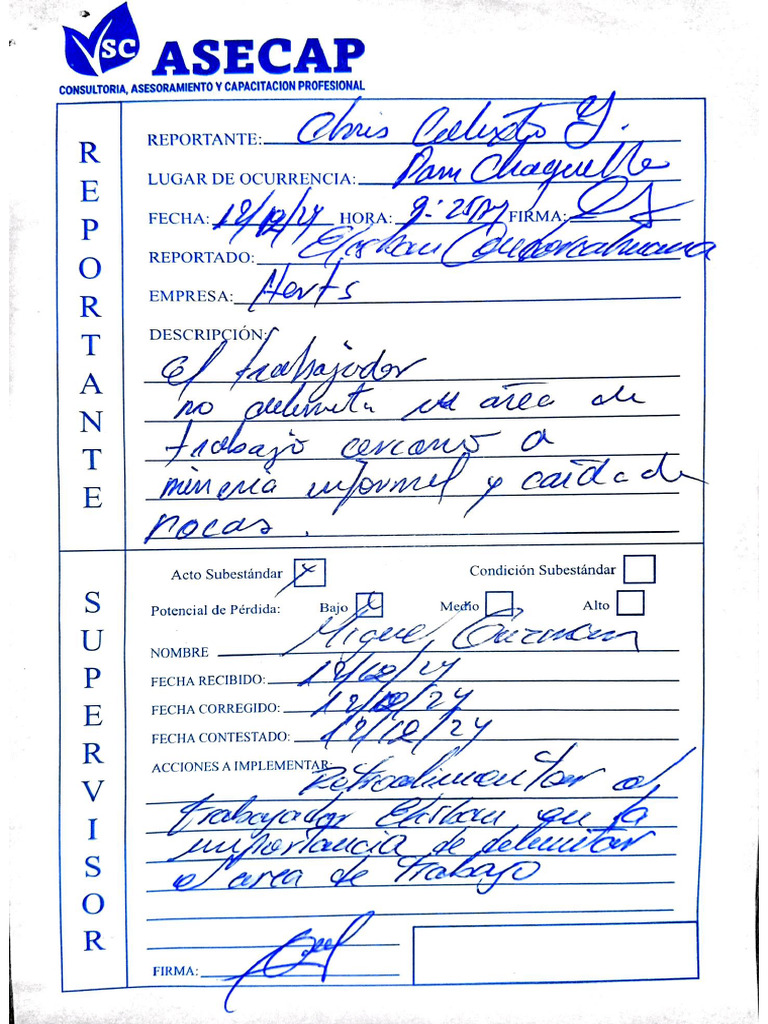 VSC ASECAP
CONSULTORIA, ASESORAMIENTO Y CAPACITACION PROFESIONAL
REPORTANTE
REPORTANTE: Chris Calixto Y.
LUGAR DE OCURRENCIA: Pam Chaquelle
FECHA: 12/12/24 HORA: 9:25 FIRMA:
REPORTADO: Condorcahuana
EMPRESA:
DESCRIPCIÓN:
El trabajador
no delimita su área de
trabajo cercano a
mineria informal y caída de
rocas.
SUPERVISOR
Acto Subestándar x Condición Subestándar
Potencial de Pérdida: Bajo Medio Alto
NOMBRE Miguel Guzman
FECHA RECIBIDO: 12/12/24
FECHA CORREGIDO: 12/12/24
FECHA CONTESTADO: 12/12/24
ACCIONES A IMPLEMENTAR: Retroalimentar al
trabajador en la
importancia de delimitar
el area de trabajo
FIRMA: